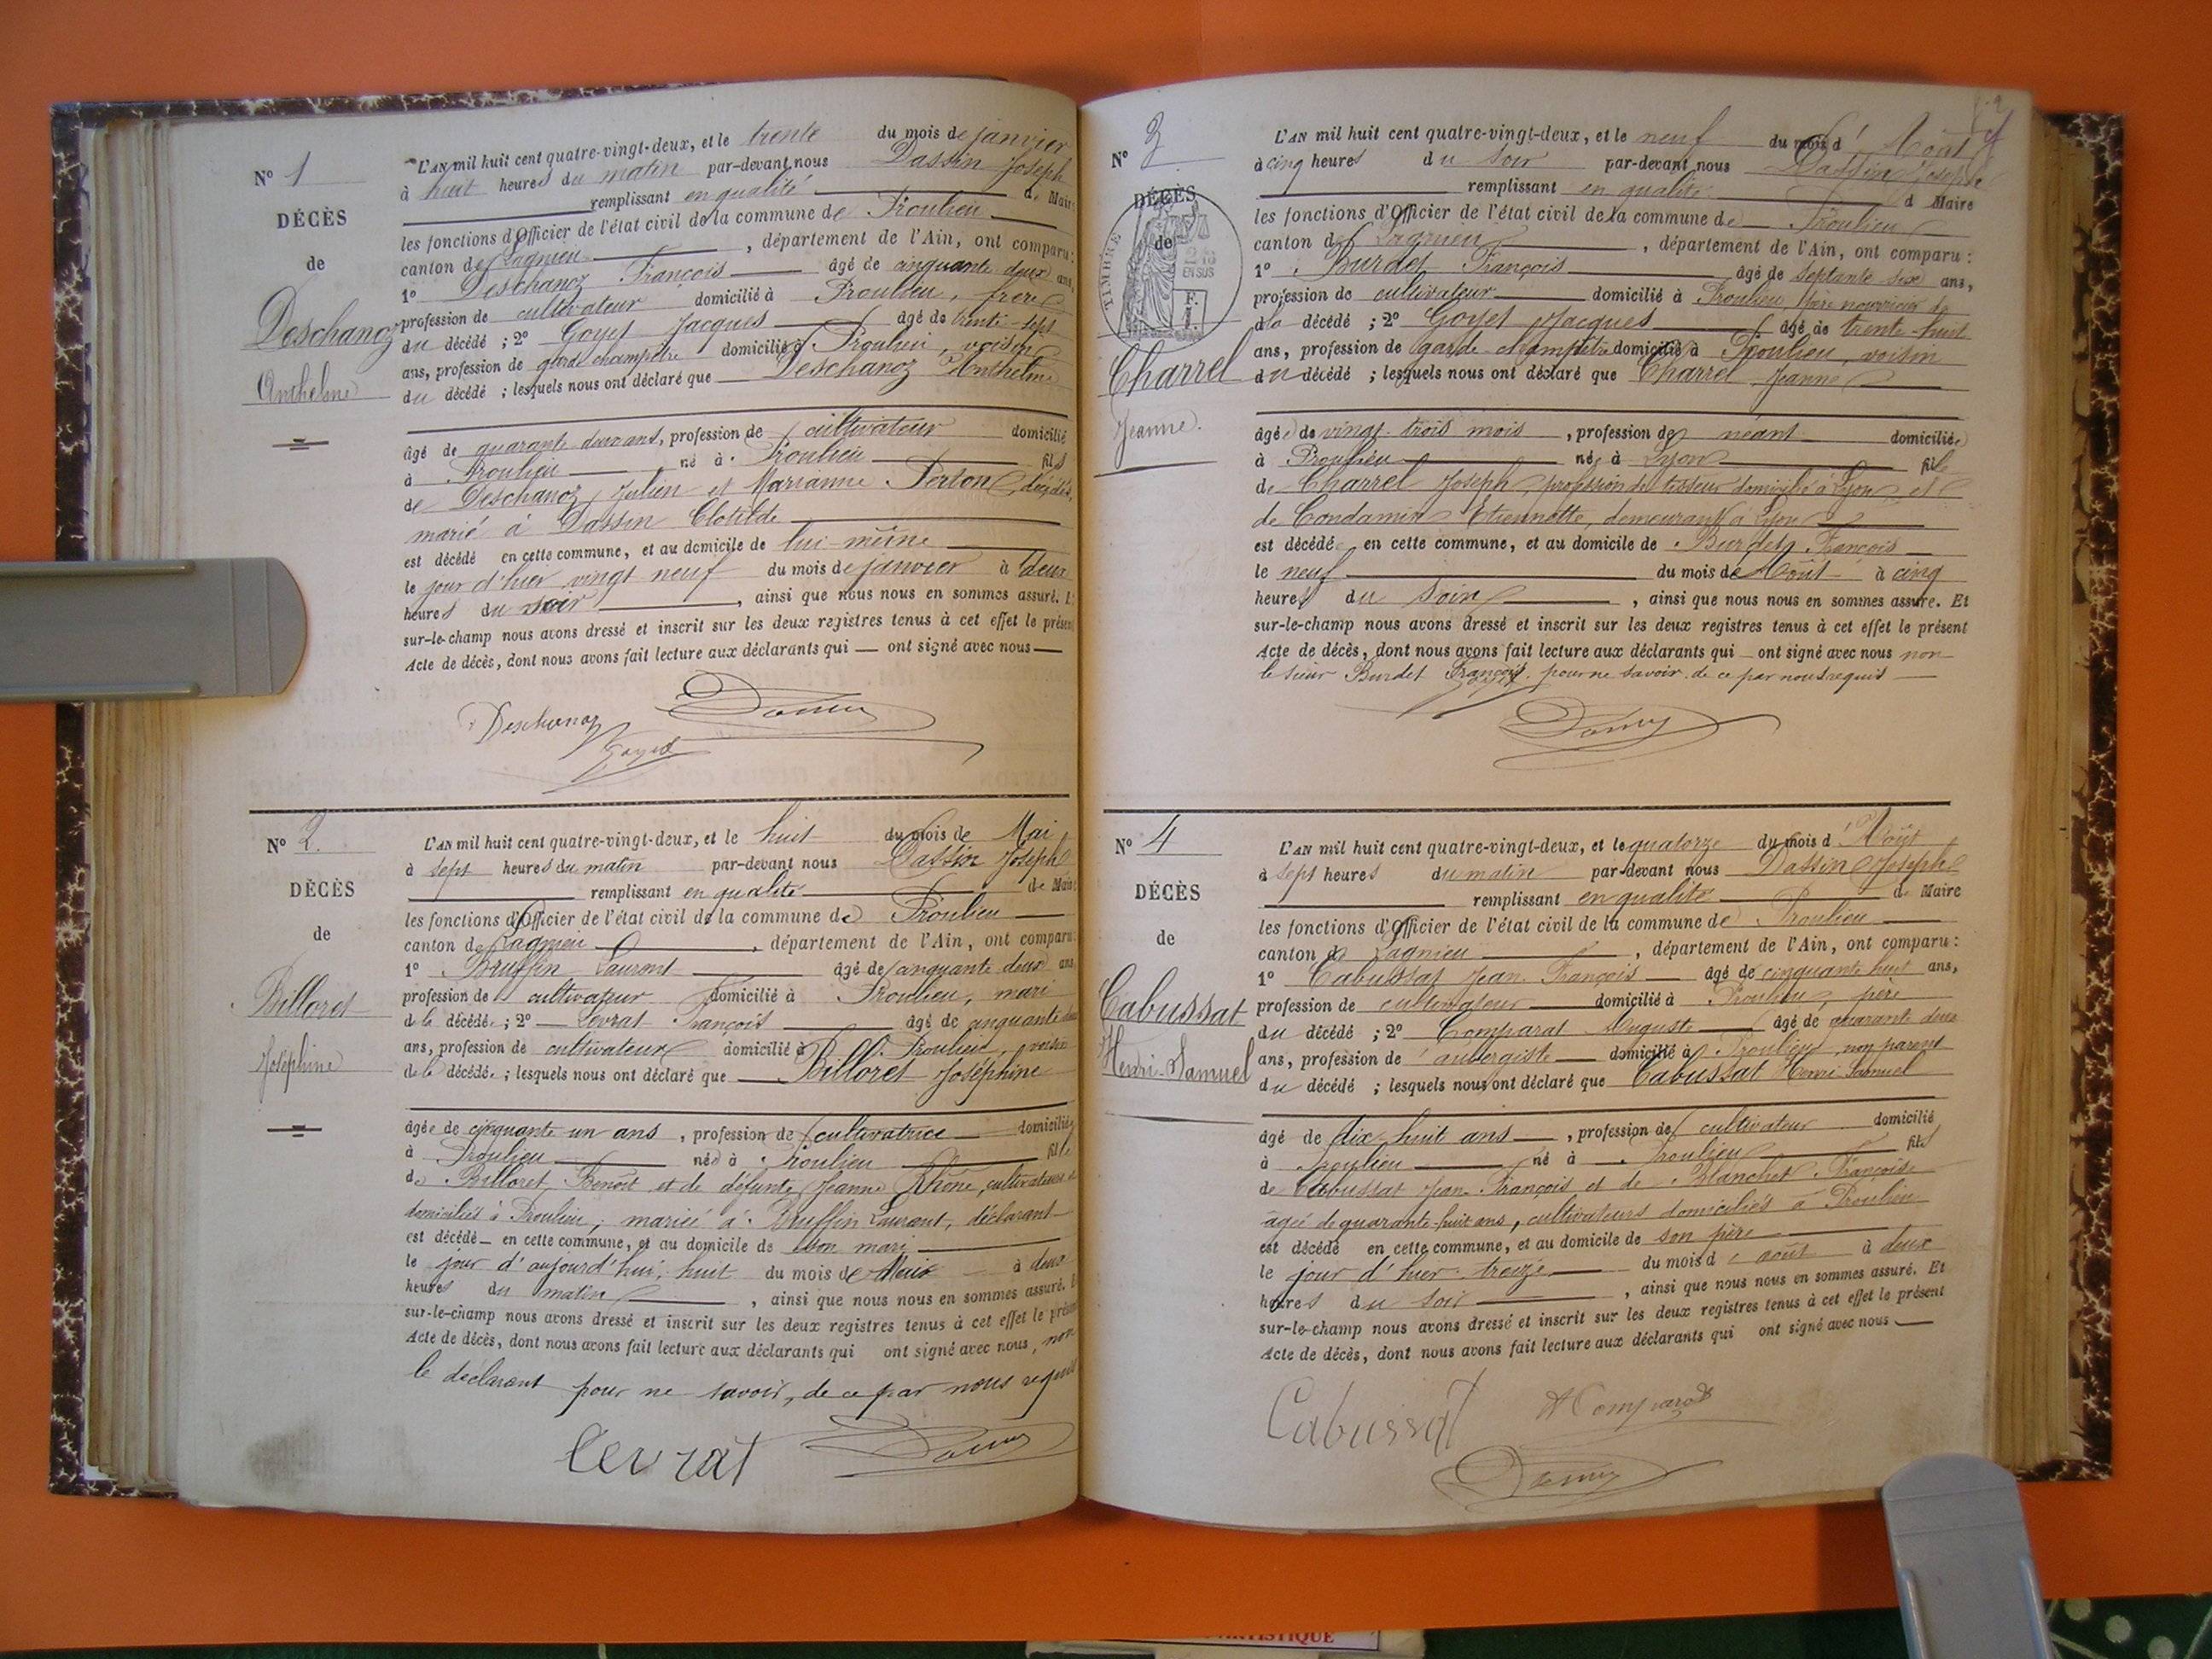 N° 1
DÉCÈS
de
Deschanoz
Anthelme
L'AN mil huit cent quatre-vingt-deux, et le trente du mois de janvier
à huit heures du matin par-devant nous Dassin Joseph
remplissant en qualité de Maire
les fonctions d'Officier de l'état civil de la commune de Proulieu
canton de Lagnieu, département de l'Ain, ont comparu :
1° Deschanoz François âgé de cinquante deux ans,
profession de cultivateur domicilié à Proulieu, frère
du décédé ; 2° Goyet Jacques âgé de trente-sept
ans, profession de garde champêtre domicilié à Proulieu, voisin
du décédé ; lesquels nous ont déclaré que Deschanoz Anthelme
âgé de quarante deux ans, profession de cultivateur domicilié
à Proulieu né à Proulieu fils
de Deschanoz Julien et Marianne Perton, décédés,
marié à Dassin Clotilde
est décédé en cette commune, et au domicile de lui-même
le jour d'hier vingt neuf du mois de janvier à deux
heures du soir, ainsi que nous nous en sommes assuré. E
sur-le-champ nous avons dressé et inscrit sur les deux registres tenus à cet effet le présent
Acte de décès, dont nous avons fait lecture aux déclarants qui — ont signé avec nous —
Deschanoz
Goyet
N° 2.
DÉCÈS
de
Billoret
Joséphine
L'AN mil huit cent quatre-vingt-deux, et le huit du mois de Mai
à sept heures du matin par-devant nous Dassin Joseph
remplissant en qualité de Maire
les fonctions d'Officier de l'état civil de la commune de Proulieu
canton de Lagnieu, département de l'Ain, ont comparu :
1° Bruffin Laurent âgé de cinquante deux ans
profession de cultivateur domicilié à Proulieu, mari
de la décédée ; 2° Levrat François âgé de cinquante
ans, profession de cultivateur domicilié à Proulieu, voisin
de la décédée ; lesquels nous ont déclaré que Billoret Joséphine
âgée de cinquante un ans, profession de cultivatrice domiciliée
à Proulieu née à Proulieu fille
de Billoret Benoît et de défunte Jeanne Rhône, cultivateurs
domiciliés à Proulieu, mariée à Bruffin Laurent, déclarant
est décédé en cette commune, et au domicile de son mari
le jour d'aujourd'hui, huit du mois de Mai à deux
heures du matin, ainsi que nous nous en sommes assuré. E
sur-le-champ nous avons dressé et inscrit sur les deux registres tenus à cet effet le présent
Acte de décès, dont nous avons fait lecture aux déclarants qui ont signé avec nous, non
le déclarant pour ne savoir, de ce par nous requis
Levrat
N° 3
DÉCÈS
de
TIMBRE
EN SUS
Charrel
Jeanne.
L'AN mil huit cent quatre-vingt-deux, et le neuf du mois d' Août
à cinq heures du soir par-devant nous Dassin Joseph
remplissant en qualité d Maire
les fonctions d'Officier de l'état civil de la commune de Proulieu
canton de Lagnieu, département de l'Ain, ont comparu :
1° Burdet François âgé de septante six ans,
profession de cultivateur domicilié à Proulieu, père nourricier de
d la décédé ; 2° Goyet Jacques âgé de trente-huit
ans, profession de garde champêtre domicilié à Proulieu, voisin
du décédé ; lesquels nous ont déclaré que Charrel Jeanne
âgée de vingt-trois mois, profession de néant domiciliée
à Proulieu née à Lyon fille
de Charrel Joseph, profession de tisseur domicilié à Lyon, et
de Condamin Etiennette, demeurant à Lyon
est décédé en cette commune, et au domicile de Burdet François
le neuf du mois de Août à cinq
heures du soir, ainsi que nous nous en sommes assuré. Et
sur-le-champ nous avons dressé et inscrit sur les deux registres tenus à cet effet le présent
Acte de décès, dont nous avons fait lecture aux déclarants qui ont signé avec nous non
le sieur Burdet François, pour ne savoir de ce par nous requis
Goyet
N° 4
DÉCÈS
de
Cabussat
Henri-Samuel
L'AN mil huit cent quatre-vingt-deux, et le quatorze du mois d' Août
à sept heures du matin par-devant nous Dassin Joseph
remplissant en qualité de Maire
les fonctions d'Officier de l'état civil de la commune de Proulieu
canton de Lagnieu, département de l'Ain, ont comparu :
1° Cabussat Jean-François âgé de cinquante huit ans,
profession de cultivateur domicilié à Proulieu, père
du décédé ; 2° Comparat Auguste âgé de quarante deux
ans, profession de aubergiste domicilié à Proulieu, non parent
du décédé ; lesquels nous ont déclaré que Cabussat Henri Samuel
âgé de dix-huit ans, profession de cultivateur domicilié
à Proulieu né à Proulieu fils
de Cabussat Jean-François et de Blanchet Françoise
agée de quarante-huit ans, cultivateurs domiciliés à Proulieu
est décédé en cette commune, et au domicile de son père
le jour d'hier treize du mois d e août à deux
heures du soir, ainsi que nous nous en sommes assuré. Et
sur-le-champ nous avons dressé et inscrit sur les deux registres tenus à cet effet le présent
Acte de décès, dont nous avons fait lecture aux déclarants qui ont signé avec nous
Cabussat
A Comparat